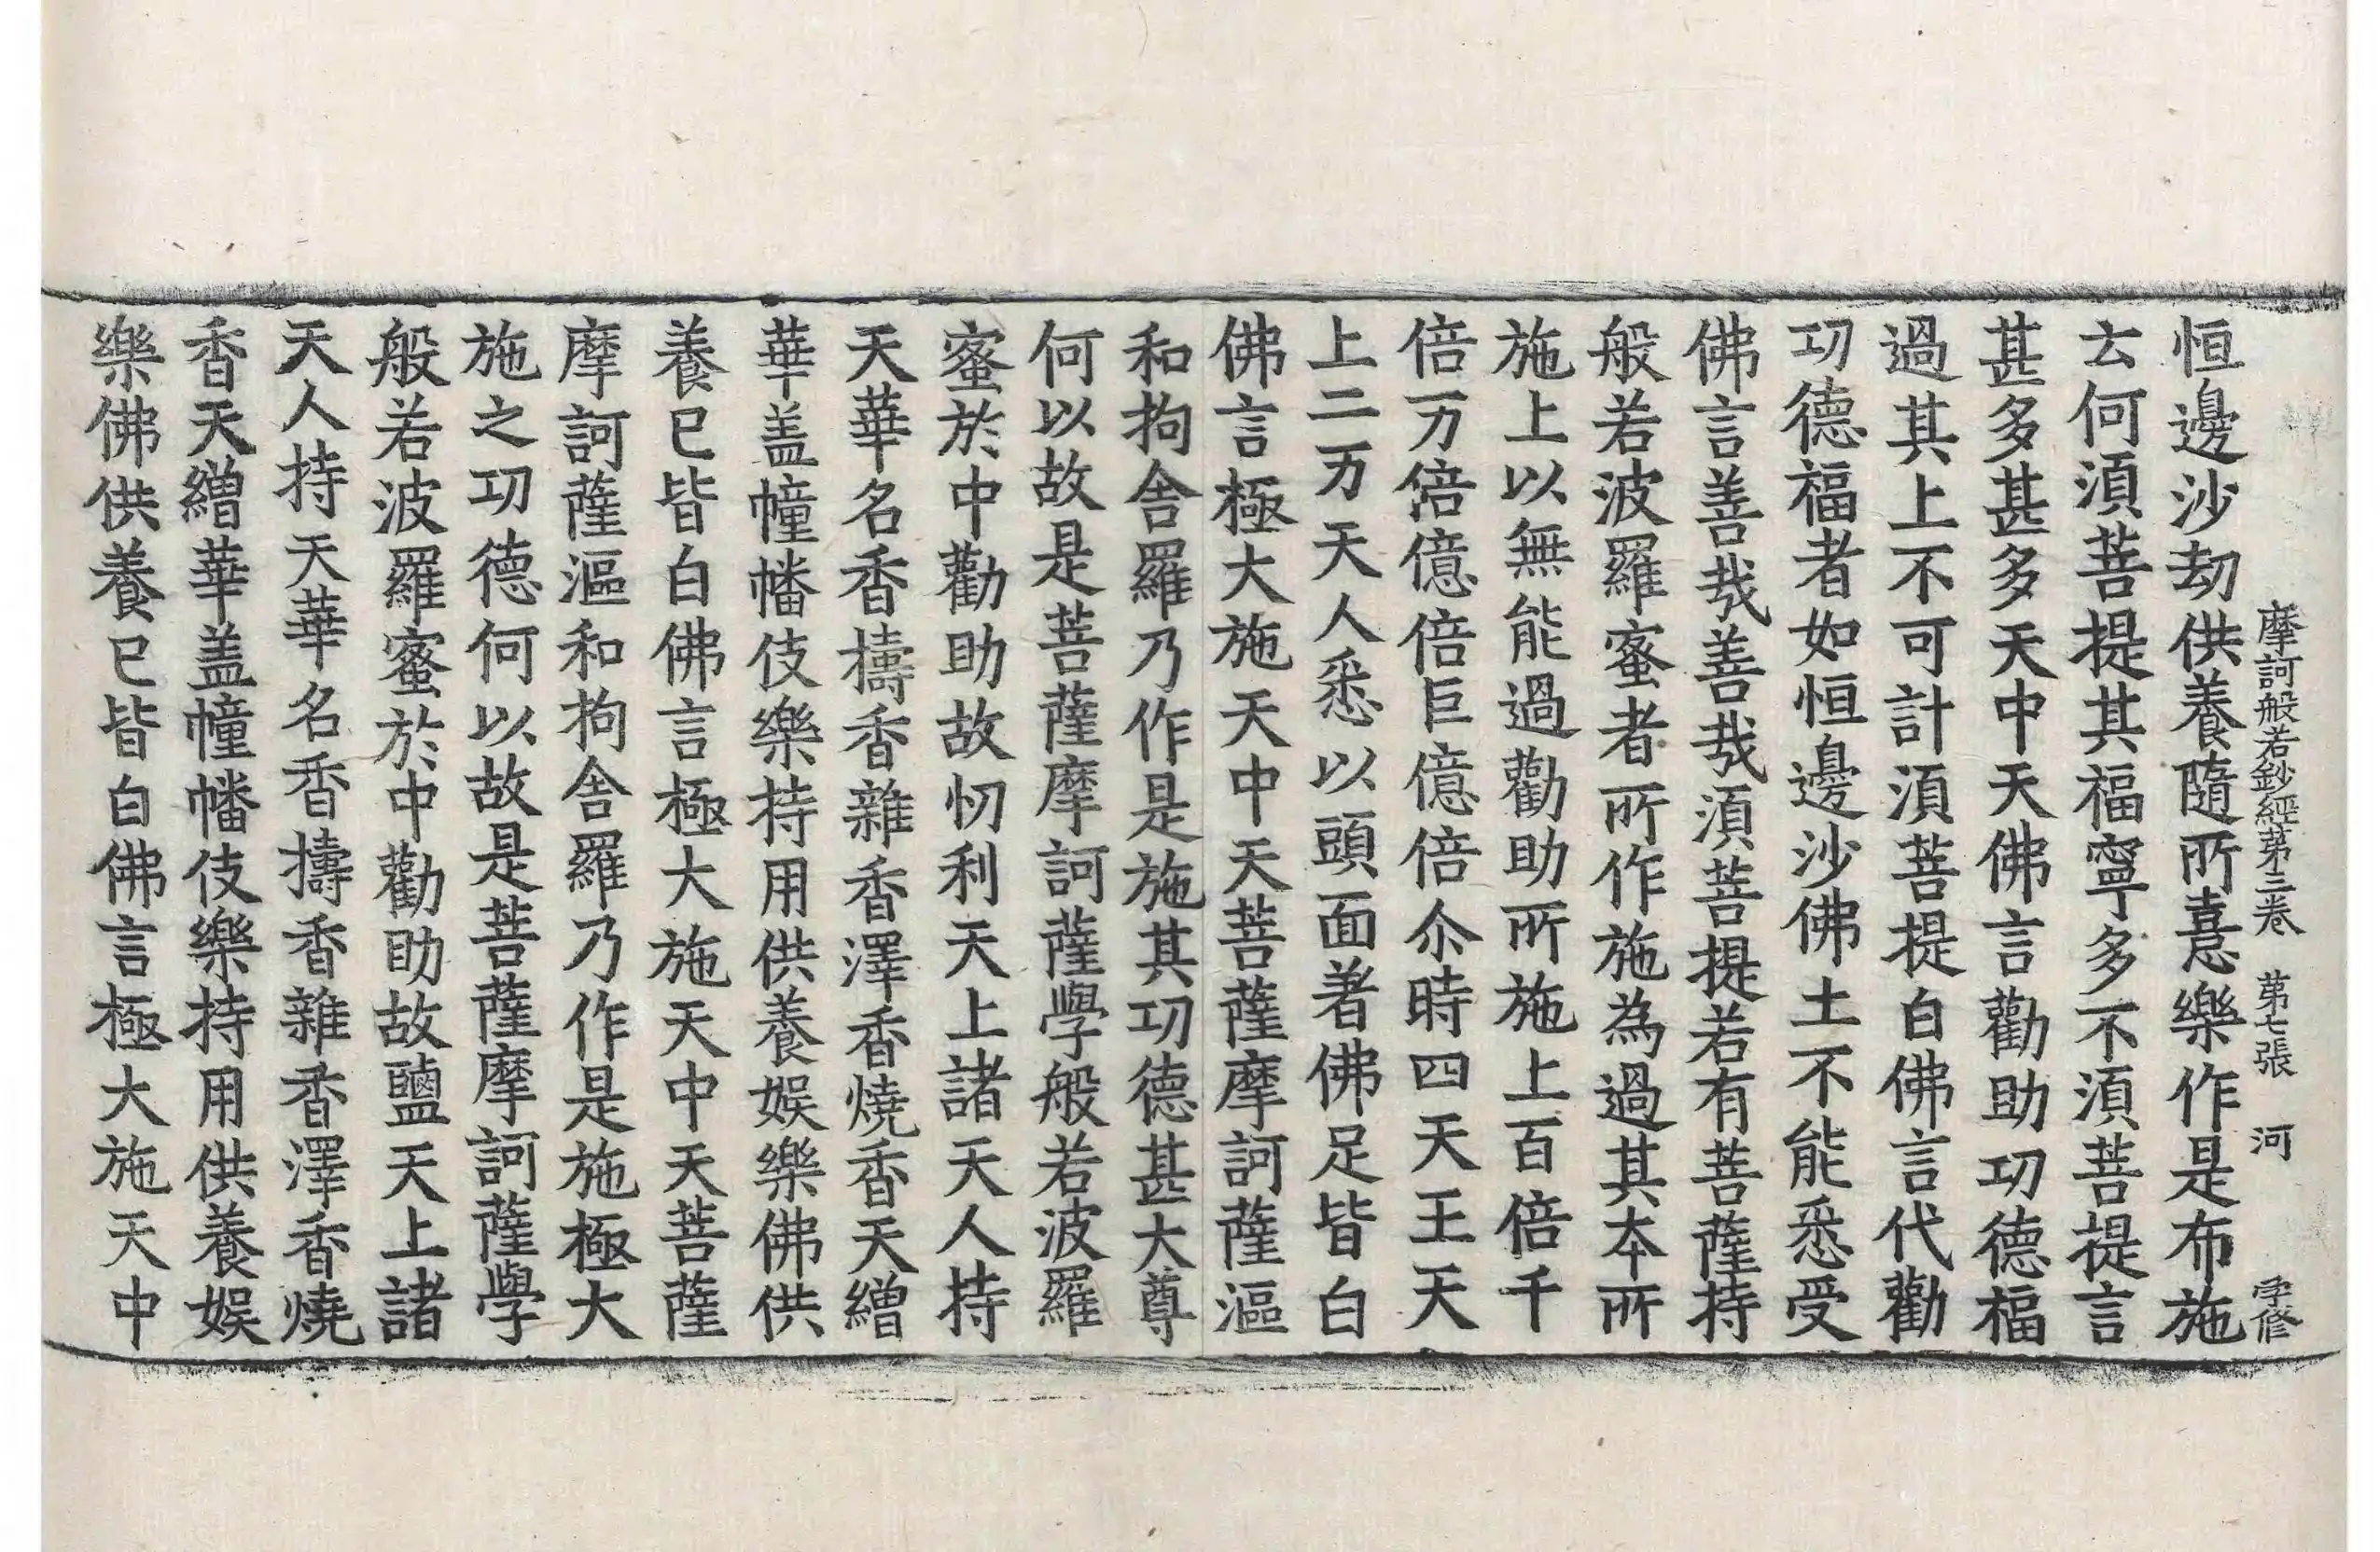 摩訶般若鈔經第三卷 第七張 河 孚修
恒邊沙劫供養隨所意樂作是布施
云何須菩提其福寧多不須菩提言
甚多甚多天中天佛言勸助功德福
過其上不可計須菩提白佛言代勸
功德福者如恒邊沙佛土不能悉受
佛言善㢤善㢤須菩提若有菩薩持
般若波羅蜜者所作施為過其本所
施上以無能過勸助所施上百倍千
倍万倍億倍巨億倍尒時四天王天
上二万天人悉以頭面著佛足皆白
佛言極大施天中天菩薩摩訶薩漚
和拘舍羅乃作是施其功德甚大尊
何以故是菩薩摩訶薩學般若波羅
蜜於中勸助故忉利天上諸天人持
天華名香擣香雜香澤香燒香天繒
華盖幢幡伎樂持用供養娛樂佛供
養已皆白佛言極大施天中天菩薩
摩訶薩漚和拘舍羅乃作是施極大
施之功德何以故是菩薩摩訶薩學
般若波羅蜜於中勸助故鹽天上諸
天人持天華名香擣香雜香澤香燒
香天繒華盖幢幡伎樂持用供養娛
樂佛供養已皆白佛言極大施天中